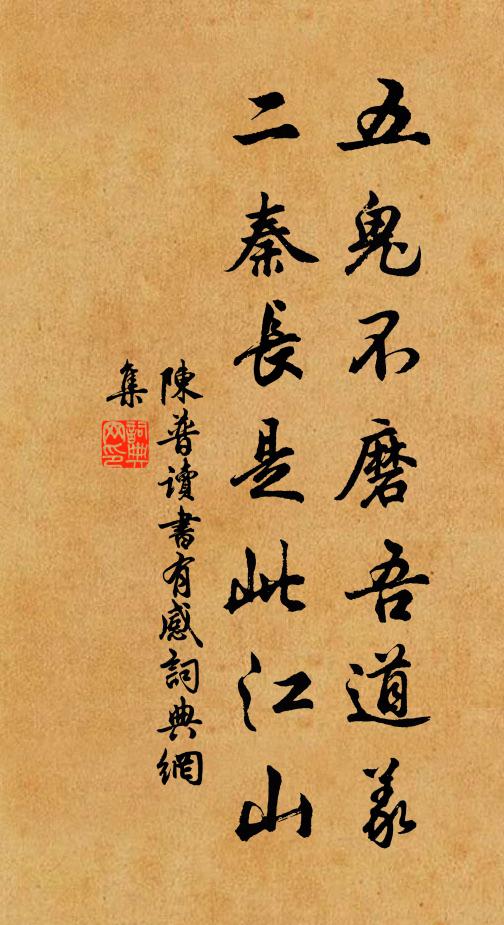 五鬼不磨吾道義
二秦長是此江山
陳普讀書有感詞典網
集
詞典
网印